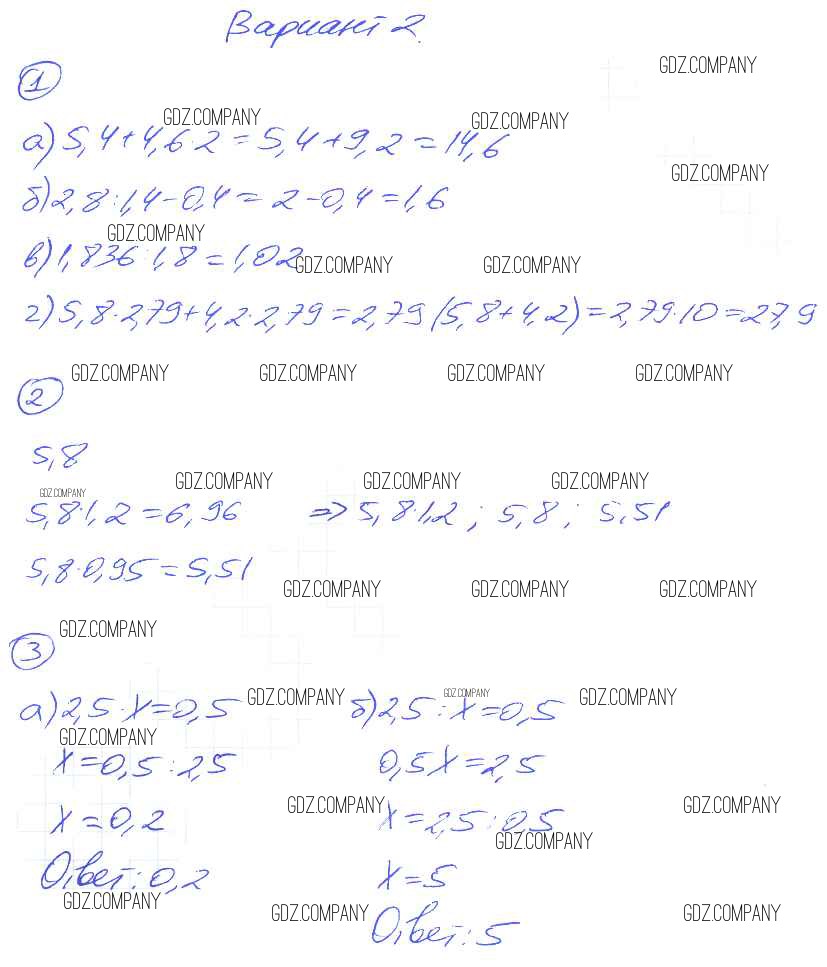 Вариант 2.
GDZ.COMPANY
1
GDZ.COMPANY GDZ.COMPANY
а) 5,4+4,6·2=5,4+9,2=14,6
GDZ.COMPANY
б) 2,8:1,4-0,4=2-0,4=1,6
GDZ.COMPANY
в) 1,836:1,8=1,02
GDZ.COMPANY GDZ.COMPANY
г) 5,8·2,79+4,2·2,79=2,79(5,8+4,2)=2,79·10=27,9
GDZ.COMPANY GDZ.COMPANY GDZ.COMPANY GDZ.COMPANY
2
5,8
GDZ.COMPANY GDZ.COMPANY GDZ.COMPANY
GDZ.COMPANY
5,8·1,2=6,96 => 5,8·1,2; 5,8; 5,51
5,8·0,95=5,51
GDZ.COMPANY GDZ.COMPANY GDZ.COMPANY
GDZ.COMPANY
3
GDZ.COMPANY GDZ.COMPANY GDZ.COMPANY
а) 2,5·x=0,5 б) 2,5:x=0,5
GDZ.COMPANY
x=0,5:2,5 0,5x=2,5
GDZ.COMPANY GDZ.COMPANY
x=0,2 x=2,5:0,5
GDZ.COMPANY
Ответ: 0,2 x=5
GDZ.COMPANY GDZ.COMPANY GDZ.COMPANY
Ответ: 5